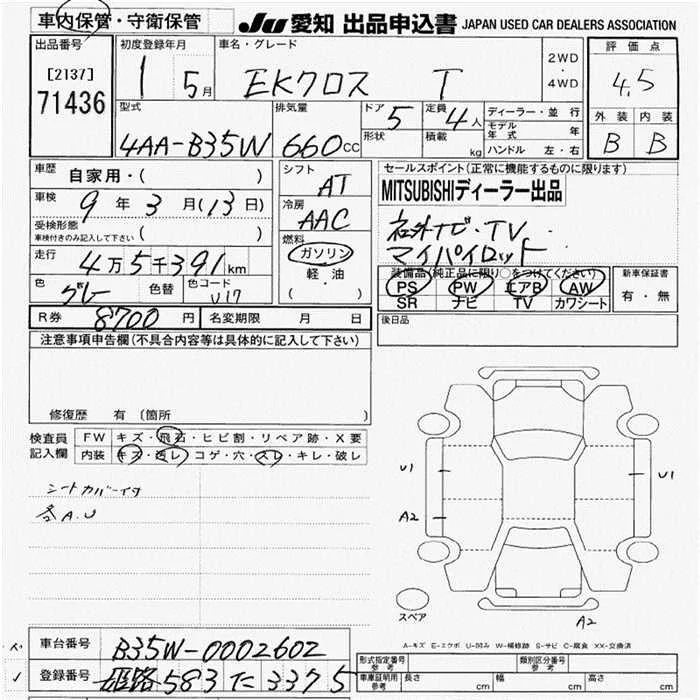 車内保管・守衛保管 JU 愛知 出品申込書 JAPAN USED CAR DEALERS ASSOCIATION
出品番号
[2137]
71436
初度登録年月
1 5月
車名・グレード
EKクロス T
2WD
・
4WD
評価点
4.5
外装 内装
B B
型式
4AA-B35W
排気量
660CC
ドア 5
形状
定員 4人
積載 kg
ディーラー・並行
モデル年式 年
ハンドル 左・右
車歴 自家用・( )
車検 9年3月(13日)
受検形態
車検付きのみ記入して下さい ( )
走行 4万5千391km
色 グレー 色替 色コード U17
シフト
AT
冷房
AAC
燃料
ガソリン
軽油
( ・ )
セールスポイント(正常に機能するものに限ります)
MITSUBISHIディーラー出品
社外ナビ・TV
マイパイロット
装備品(純正品に限り○をつけてください)
PS PW エアB AW
SR ナビ TV カワシート
新車保証書
有・無
R券 8700円 名変期限 月 日
後日品
注意事項申告欄(不具合内容等は具体的に記入して下さい)
修復歴 有(箇所 )
検査員記入欄
FW キズ・飛石・ヒビ割・リペア跡・X要
内装 キズ・汚レ・コゲ・穴・スレ・キレ・破レ
シートカバー付
各A.U
U1 U1
A2
スペア
A2
A-キズ E-エクボ U-凹み W-補修跡 S-サビ C-腐食 XX-交換済
車台番号 B35W-0002602
登録番号 姫路583た3375
形式指定番号 参考
類別区分番号 参考
車庫証明用 参考 長さ cm 幅 cm 高さ cm